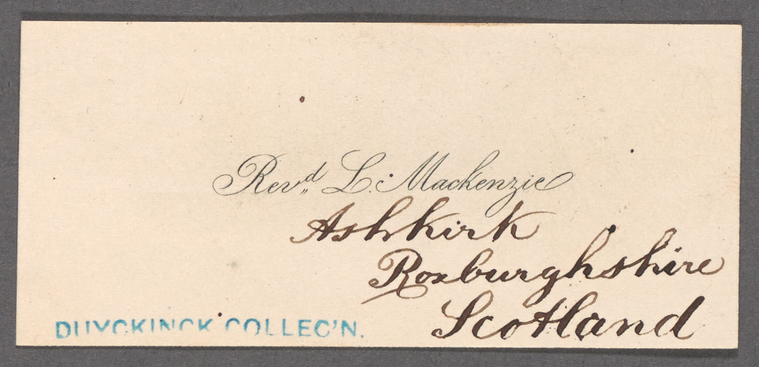 Revd L. Mackenzie
Ashkirk
Roxburghshire
Scotland
DUYCKINCK COLLEC'N.